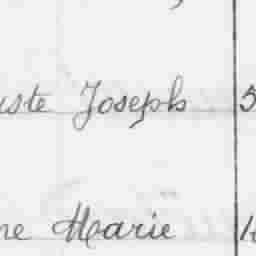 iste Joseph 5
ne Marie